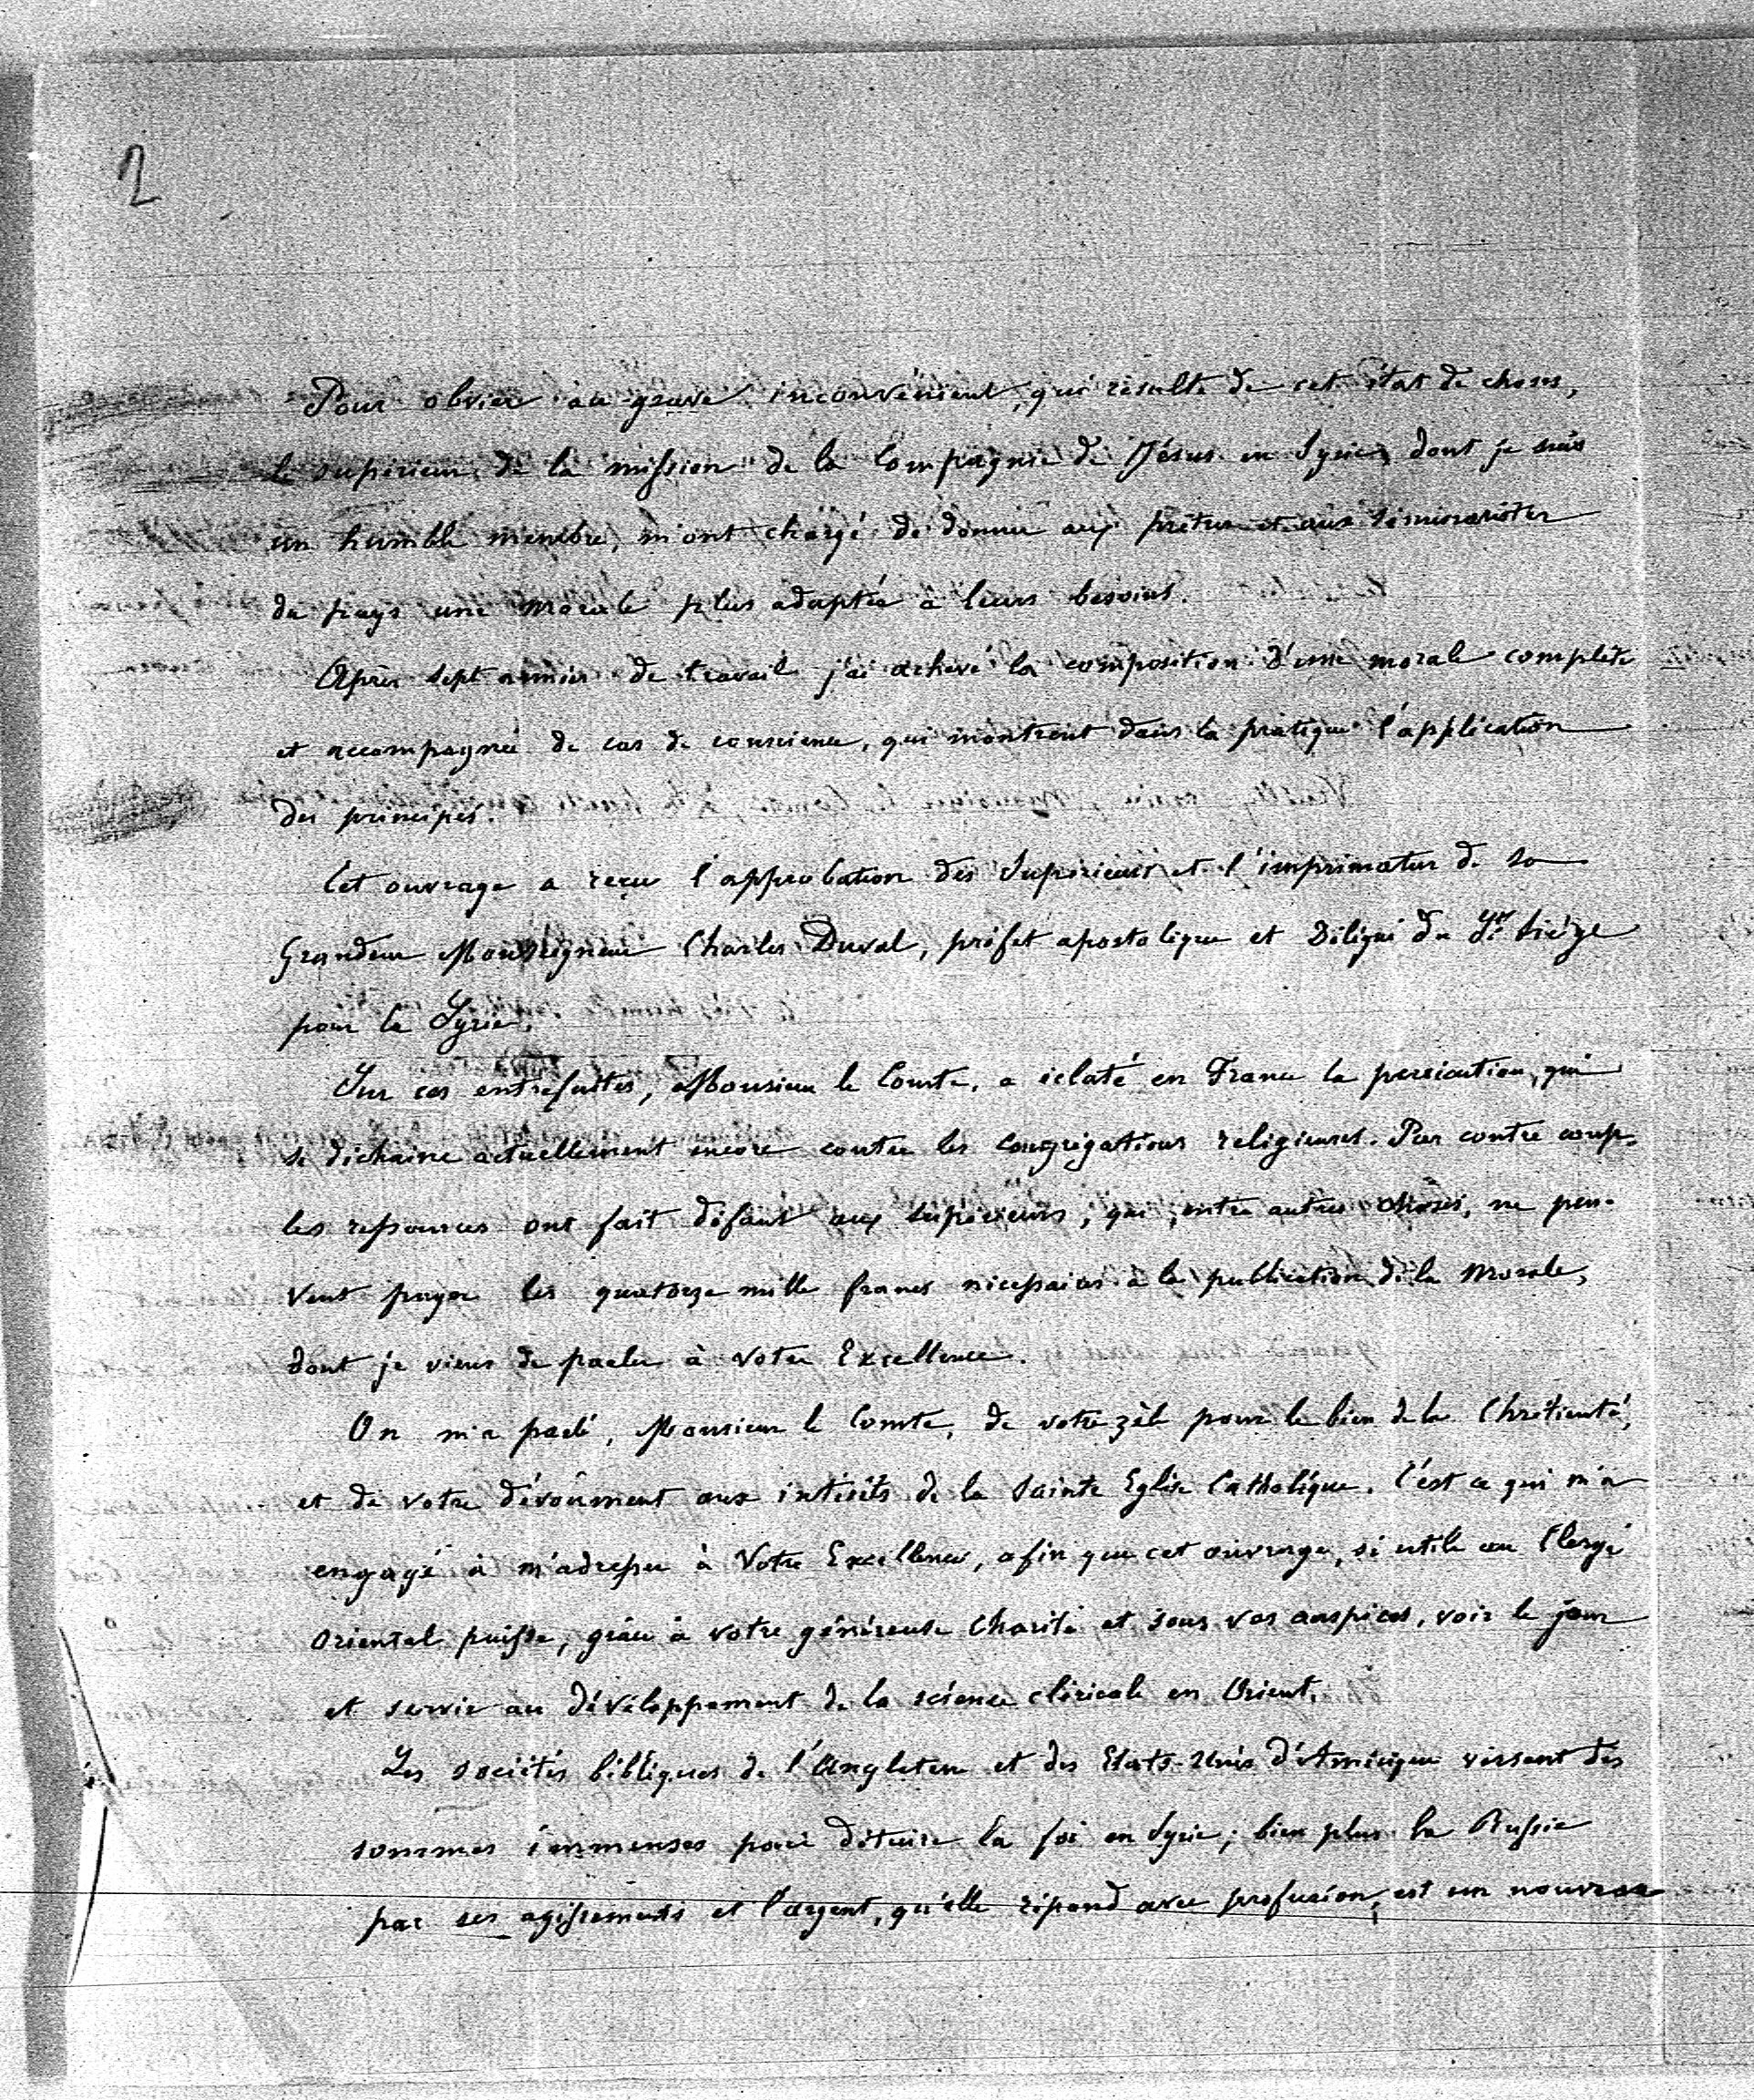 2
Pour obvier au grave inconvénient, qui résulte de cet état de choses,
le supérieur de la mission de la Compagnie de Jésus en Syrie, dont je suis
un humble membre, m'ont chargé de donner aux prêtres et aux séminaristes
du pays une morale plus adaptée à leurs besoins.
Après sept années de travail j'ai achevé la composition d'une morale complète
et accompagnée de cas de conscience, qui montrent dans la pratique l'application
des principes.
Cet ouvrage a reçu l'approbation des Supérieurs et l'imprimatur de Sa
Grandeur Monseigneur Charles Duval, préfet apostolique et Délégué du St Siège
pour la Syrie.
Sur ces entrefaites, Monsieur le Comte, a éclaté en France la persécution, qui
se déchaîne actuellement encore contre les congrégations religieuses. Par contre coup,
les ressources ont fait défaut aux supérieurs, qui, entre autres choses, ne peu-
vent payer les quatorze mille francs nécessaires à la publication de la Morale,
dont je viens de parler à Votre Excellence.
On m'a parlé, Monsieur le Comte, de votre zèle pour le bien de la Chrétienté,
et de votre dévoûment aux intérêts de la Sainte Eglise Catholique. C'est ce qui m'a
engagé à m'adresser à Votre Excellence, afin que cet ouvrage, si utile au Clergé
Oriental puisse, grâce à votre généreuse Charité et sous vos auspices, voir le jour
et servir au développement de la science cléricale en Orient.
Les sociétés bibliques de l'Angleterre et des Etats-Unis d'Amérique versent des
sommes immenses pour détruire la foi en Syrie; bien plus la Russie
par ses agissements et l'argent, qu'elle répand avec profusion, est un nouveau